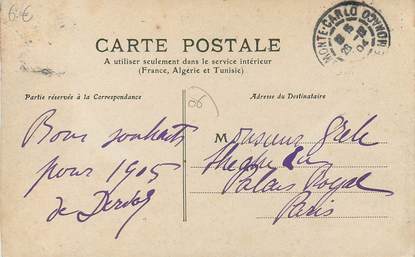 6 €
MONTE-CARLO
28 12 04
CARTE POSTALE
A utiliser seulement dans le service intérieur
(France, Algerie et Tunisie)
Partie réservée à la Correspondance
Adresse du Destinataire
06
Bons souhaits
pour 1905
de
Monsieur
Palais Royal
Paris